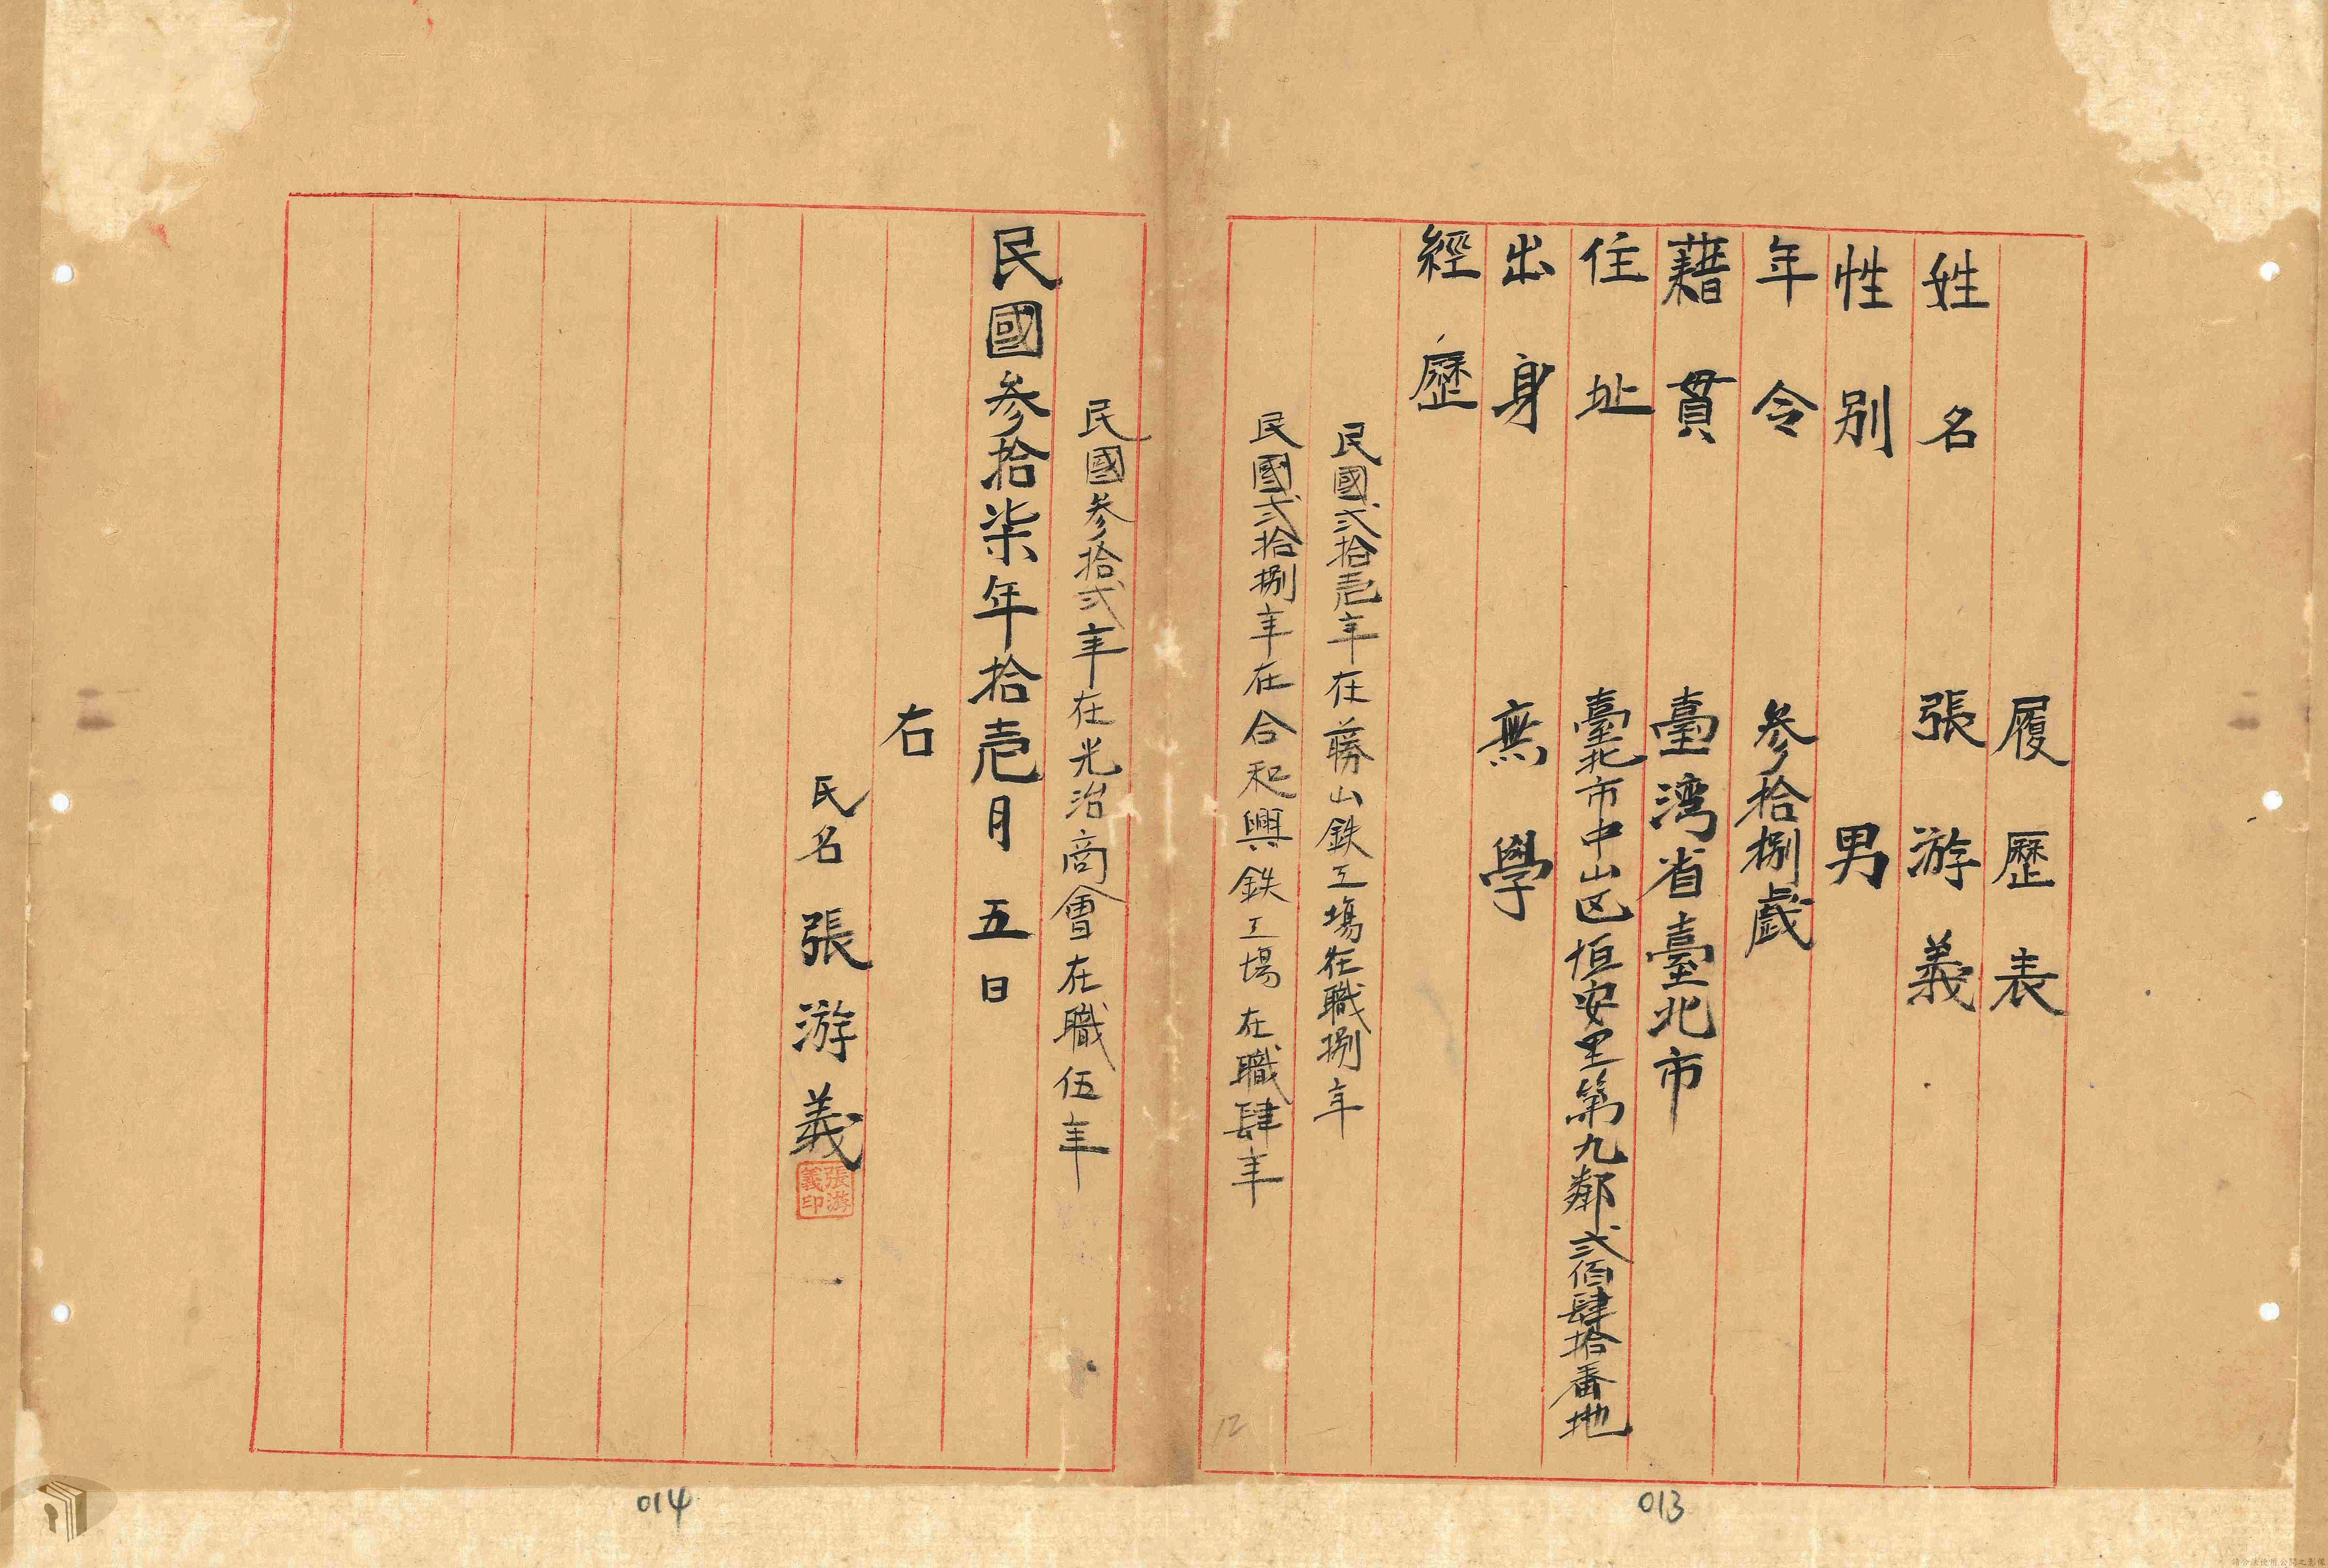 履歷表
姓名 張游義
性別 男
年令 参拾捌歲
藉貫 臺湾省臺北市
住址 臺北市中山区恒安里第九鄰弍佰肆拾番地
出身 無學
經歷
民國弍拾壱年在勝山鉄工場在職捌年
民國弍拾捌年在合和興鉄工場在職肆年
民國参拾弍年在光治商會在職伍年
民國参拾柒年拾壱月五日
右
氏名 張游義
張游義印
12
013
014